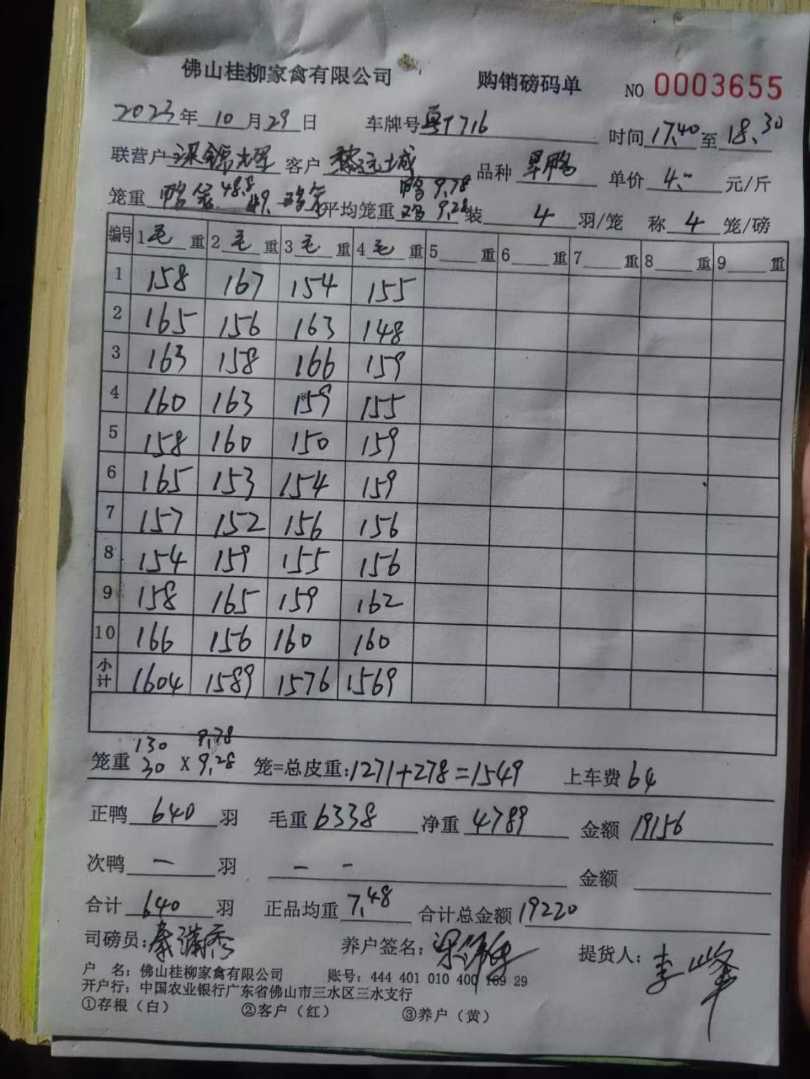 佛山桂柳家禽有限公司 购销磅码单 NO 0003655
2023年10月29日 车牌号粤T716 时间17.40至18.30
联营户 客户 品种 单价4.-元/斤
笼重 鸭 48.8 49. 平均笼重 鸭 9.78 9.28 装4羽/笼 称4笼/磅
编号 1毛重 2毛重 3毛重 4毛重 5重 6重 7重 8重 9重
1 158 167 154 155
2 165 156 163 148
3 163 158 166 159
4 160 163 159 155
5 158 160 150 159
6 165 153 154 159
7 157 152 156 156
8 154 159 155 156
9 158 165 159 162
10 166 156 160 160
小计 1604 1589 1576 1569
130 9.78
笼重 30 X 9.28 笼=总皮重:1271+278=1549 上车费64
正鸭640羽 毛重6338 净重4789 金额19156
次鸭一羽 — - 金额
合计640羽 正品均重7.48 合计总金额19220
司磅员: 养户签名: 提货人:李峰
户 名:佛山桂柳家禽有限公司 账号:444 401 010 400 169 29
开户行:中国农业银行广东省佛山市三水区三水支行
①存根(白) ②客户(红) ③养户(黄)